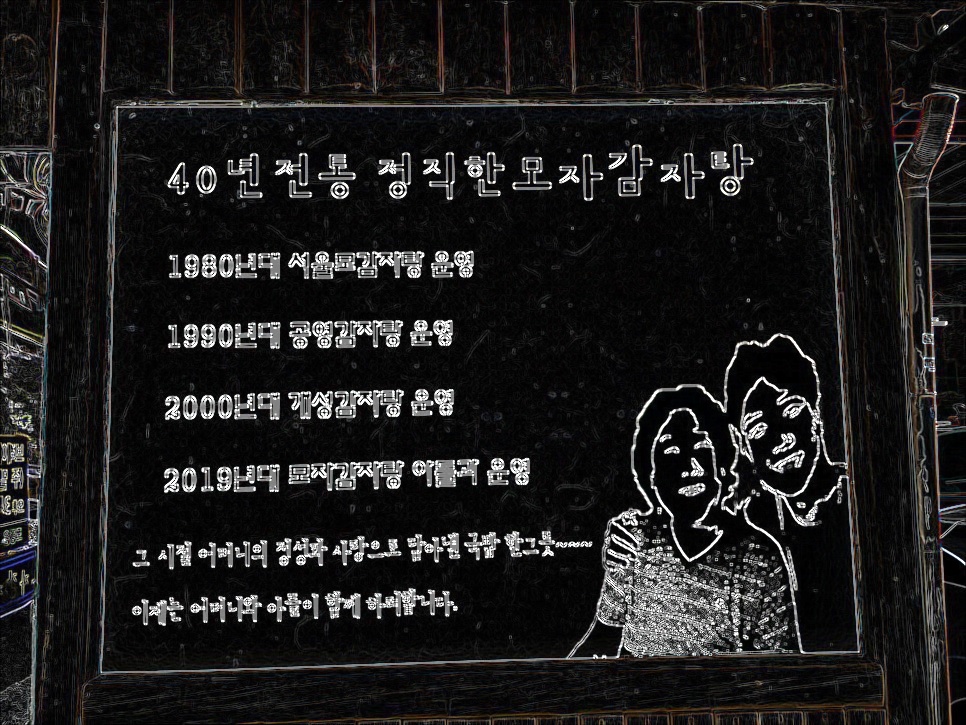 40년전통 정직한모자감자탕
1980년대 서울뚝감자탕 운영
1990년대 공영감자탕 운영
2000년대 개성감자탕 운영
2019년대 모자감자탕 아들과 운영
그 시절 어머니의 정성과 사랑으로 담아낸 국밥 한그릇~~~~
이제는 어머니와 아들이 함께 하려합니다.